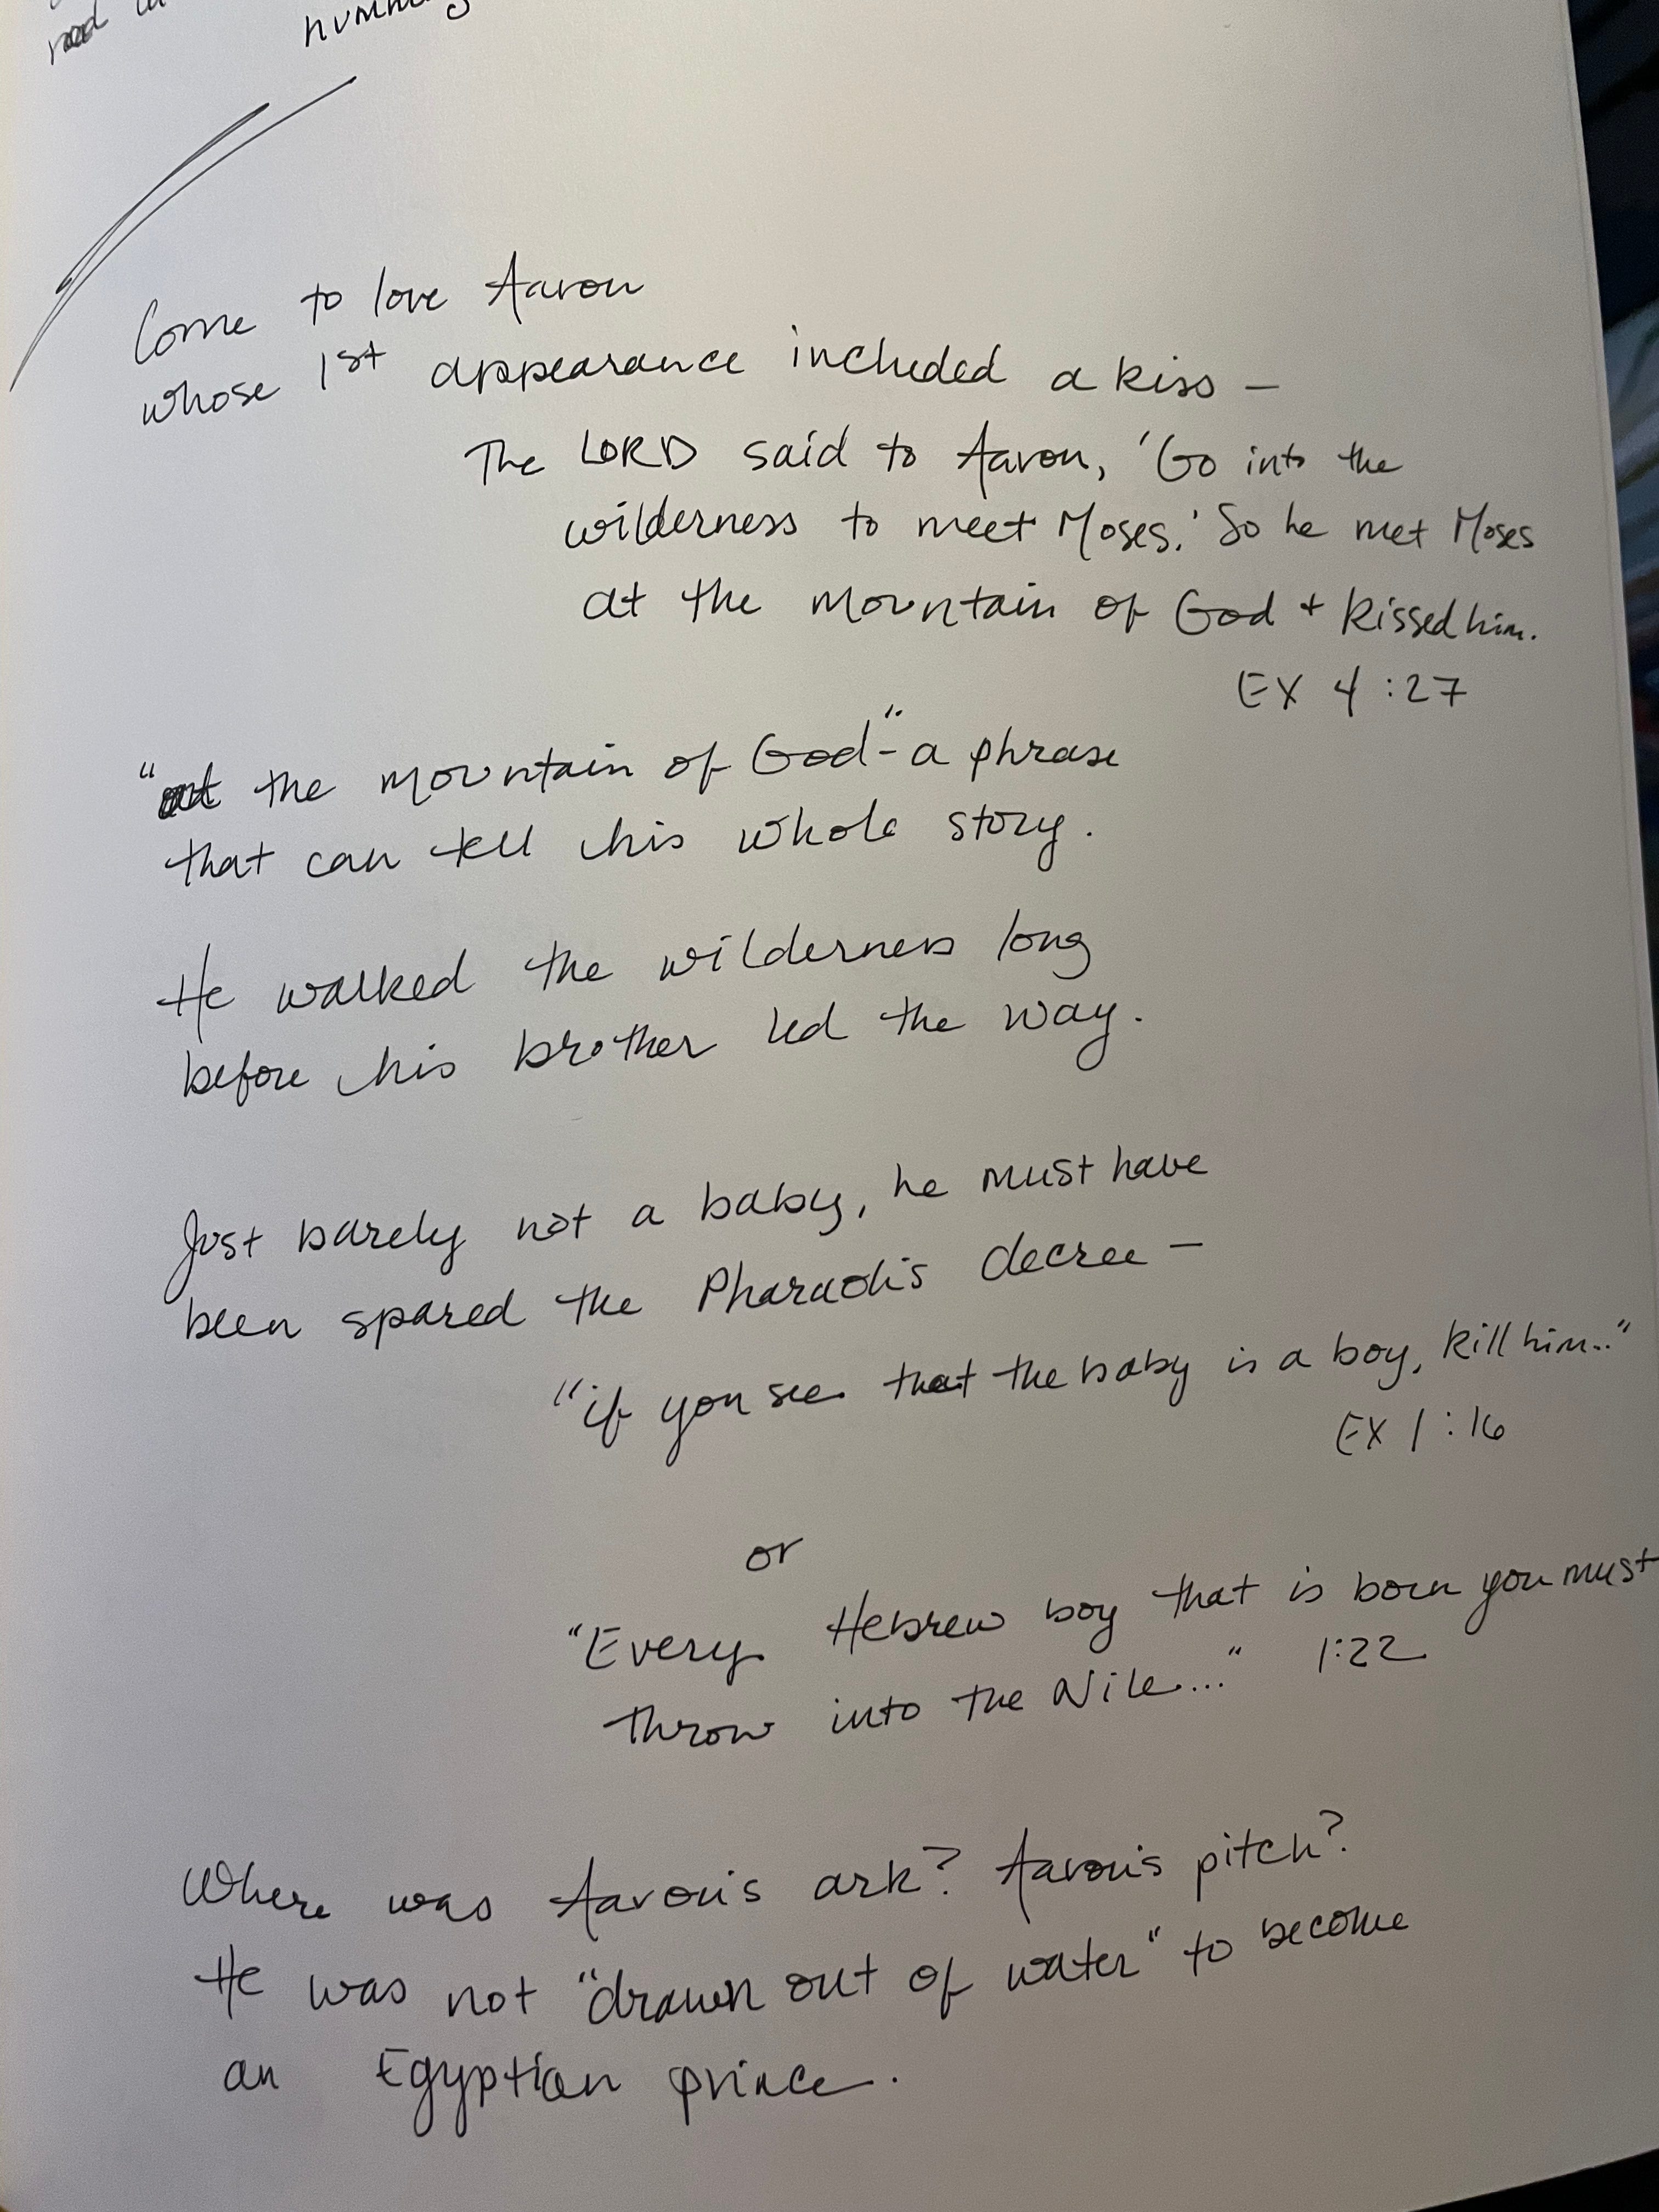 humm
Come to love Aaron
whose 1st appearance included a kiss –
The LORD said to Aaron, 'Go into the
wilderness to meet Moses.' So he met Moses
at the mountain of God + kissed him.
EX 4:27
"at the mountain of God" – a phrase
that can tell his whole story.
He walked the wilderness long
before his brother led the way.
Just barely not a baby, he must have
been spared the Pharaoh's decree –
"if you see that the baby is a boy, kill him.."
EX 1:16
or
"Every Hebrew boy that is born you must
throw into the Nile...." 1:22
Where was Aaron's ark? Aaron's pitch?
He was not "drawn out of water" to become
an Egyptian prince.